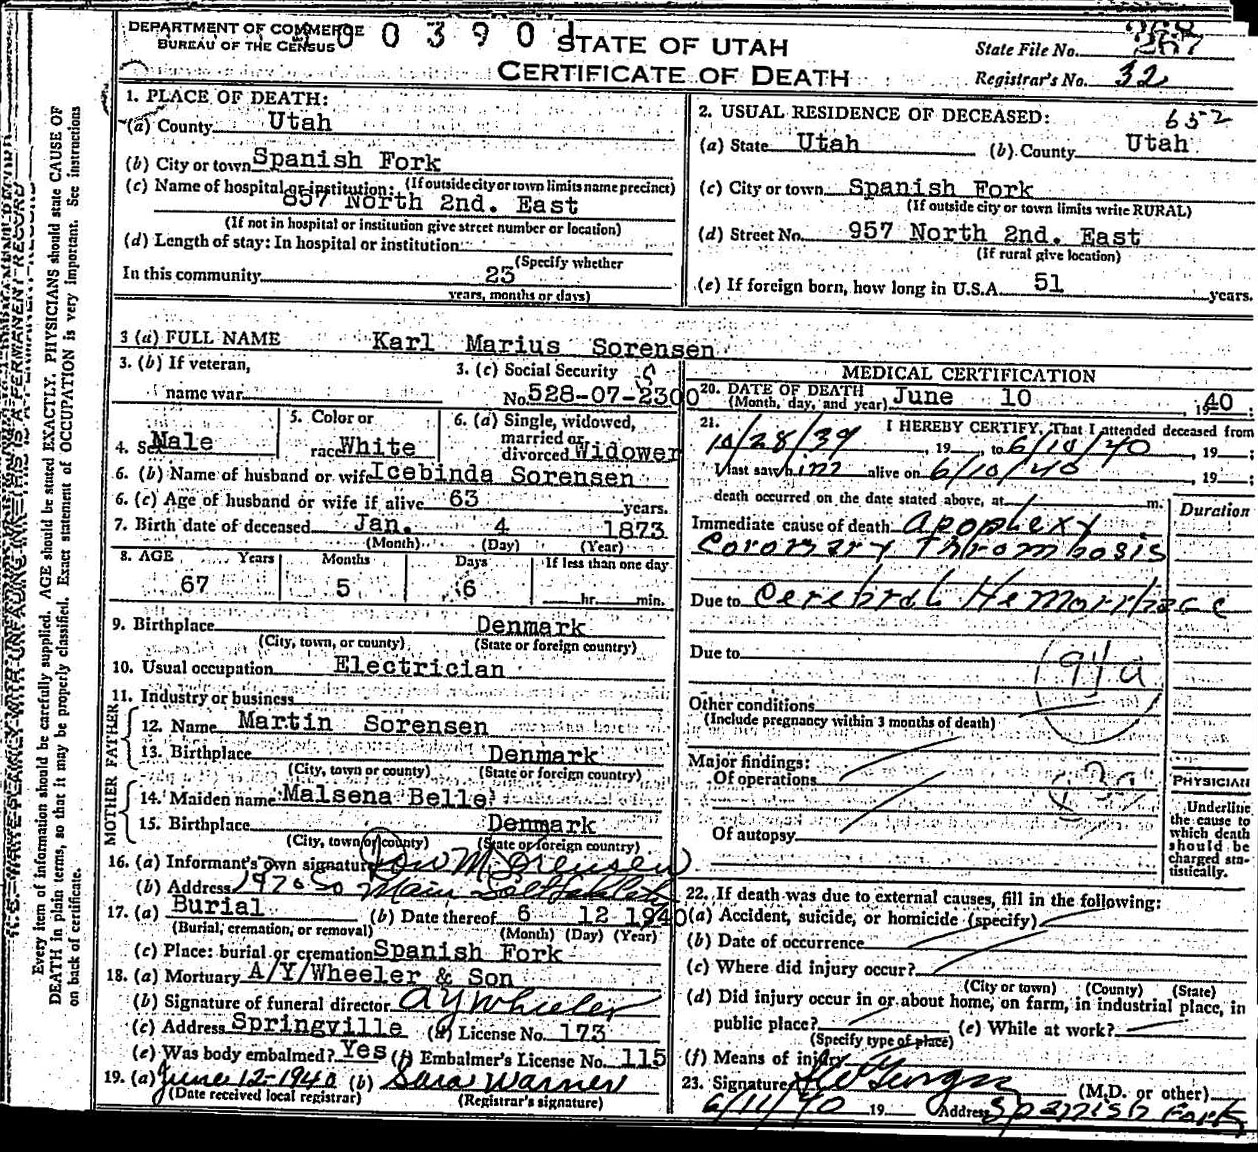 DEPARTMENT OF COMMERCE
BUREAU OF THE CENSUS
0 0 3 9 0 1
STATE OF UTAH
CERTIFICATE OF DEATH
State File No. 267
Registrar's No. 32
1. PLACE OF DEATH:
(a) County Utah
(b) City or town Spanish Fork
(If outside city or town limits name precinct)
(c) Name of hospital or institution:
857 North 2nd. East
(If not in hospital or institution give street number or location)
(d) Length of stay: In hospital or institution
(Specify whether
In this community 23
years, months or days)
2. USUAL RESIDENCE OF DECEASED: 652
(a) State Utah (b) County Utah
(c) City or town Spanish Fork
(If outside city or town limits write RURAL)
(d) Street No. 957 North 2nd. East
(If rural give location)
(e) If foreign born, how long in U.S.A. 51 years.
3 (a) FULL NAME Karl Marius Sorensen
3. (b) If veteran,
name war
3. (c) Social Security
No. 528-07-2300
4. Sex Male
5. Color or
race White
6. (a) Single, widowed,
married or
divorced Widower
6. (b) Name of husband or wife Icebinda Sorensen
6. (c) Age of husband or wife if alive 63 years.
7. Birth date of deceased Jan. 4 1873
(Month) (Day) (Year)
8. AGE Years Months Days If less than one day
67 5 6 hr. min.
9. Birthplace Denmark
(City, town, or county) (State or foreign country)
10. Usual occupation Electrician
11. Industry or business
FATHER
12. Name Martin Sorensen
13. Birthplace Denmark
(City, town or county) (State or foreign country)
MOTHER
14. Maiden name Malsena Belle
15. Birthplace Denmark
(City, town or county) (State or foreign country)
16. (a) Informant's own signature Sorensen
(b) Address 1970 So Main Salt Lake City
17. (a) Burial (b) Date thereof 6 12 1940
(Burial, cremation, or removal) (Month) (Day) (Year)
(c) Place: burial or cremation Spanish Fork
18. (a) Mortuary A/Y/Wheeler & Son
(b) Signature of funeral director A Y Wheeler
(c) Address Springville (d) License No. 173
(e) Was body embalmed? Yes (f) Embalmer's License No. 115
19. (a) June 12-1940 (b) Sara Warner
(Date received local registrar) (Registrar's signature)
MEDICAL CERTIFICATION
20. DATE OF DEATH June 10 1940
(Month, day, and year)
21. I HEREBY CERTIFY, That I attended deceased from
10/28/39, 19 to 6/10/40, 19 ;
I last saw him alive on 6/10/40, 19 ;
death occurred on the date stated above, at m.
Duration
Immediate cause of death Apoplexy
Coronary Thrombosis
Due to Cerebral Hemorrhage
Due to
94a
Other conditions
(Include pregnancy within 3 months of death)
Major findings:
Of operations
Of autopsy
PHYSICIAN
Underline
the cause to
which death
should be
charged sta-
tistically.
22. If death was due to external causes, fill in the following:
(a) Accident, suicide, or homicide (specify)
(b) Date of occurrence
(c) Where did injury occur?
(City or town) (County) (State)
(d) Did injury occur in or about home, on farm, in industrial place, in
public place? (e) While at work?
(Specify type of place)
(f) Means of injury
23. Signature (M.D. or other)
6/11/40 19 Address Spanish Fork
Every item of information should be carefully supplied. AGE should be stated EXACTLY. PHYSICIANS should state CAUSE OF
DEATH in plain terms, so that it may be properly classified. Exact statement of OCCUPATION is very important. See instructions
on back of certificate.